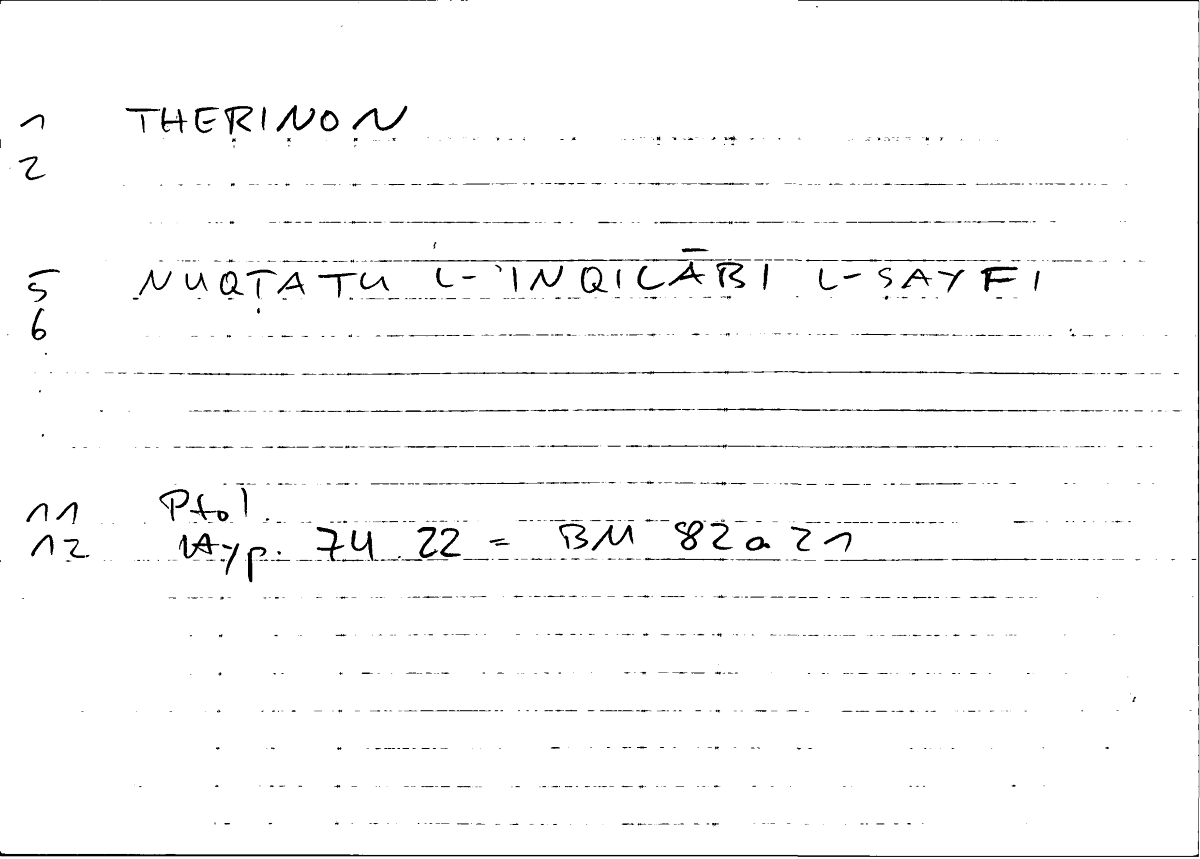 1 THERINON
2
5 NUQṬATU L-ʾINQILĀBI L-ṢAYFI
6
.
.
.
11 Ptol.
12 Hyp. 74 22 = BM 82a21